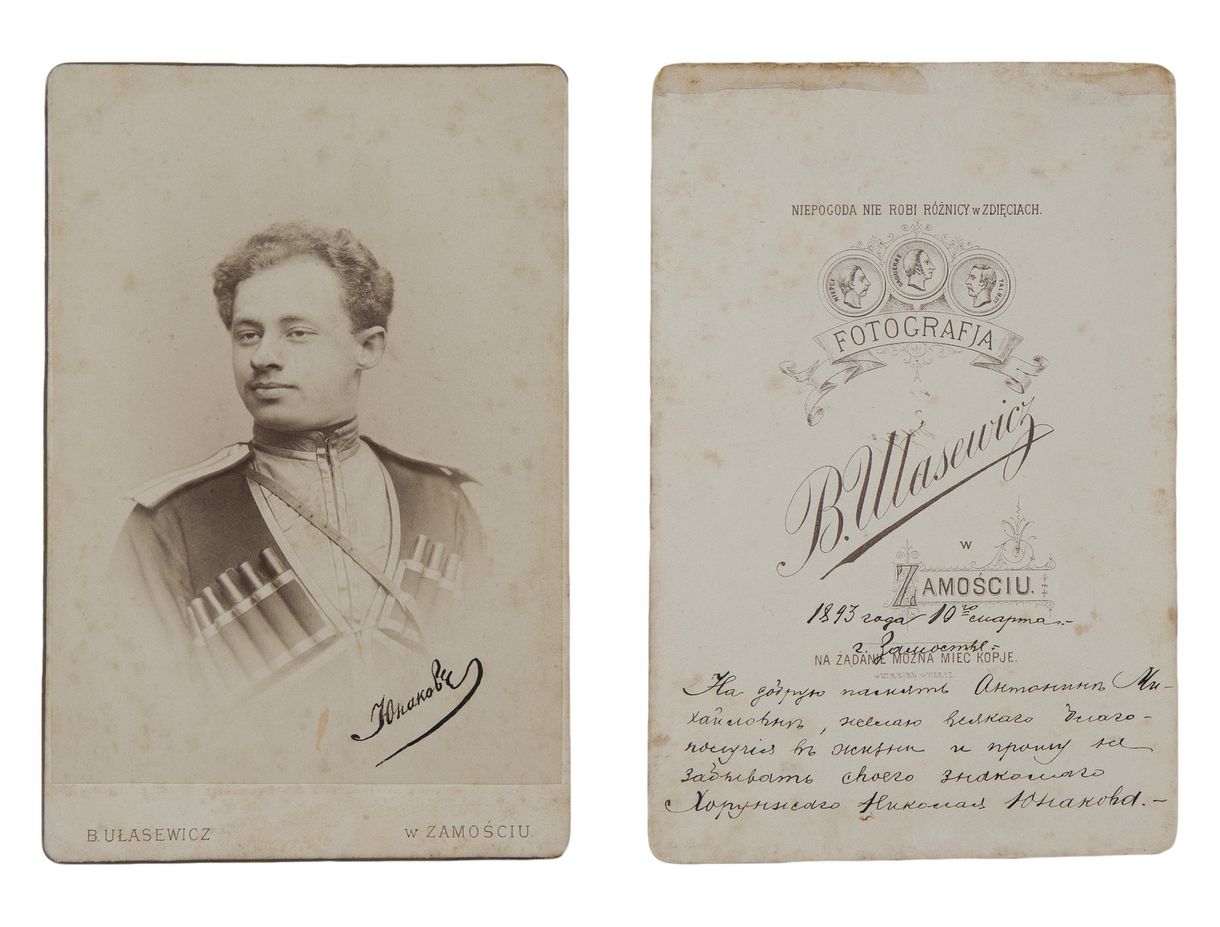 Юнаковъ
B. UŁASEWICZ
w ZAMOŚCIU.
NIEPOGODA NIE ROBI RÓŻNICY w ZDIĘCIACH.
NIEPCE
TALBOT
FOTOGRAFJA
B. Ułasewicz
w
ZAMOŚCIU.
1893 года 10го марта.-
г. Замостье.-
NA ŻĄDANIE MOŻNA MIEC KOPJE.
На добрую память Антонинѣ Ми-
хайловнѣ, желаю всякаго благо-
получія въ жизни и прошу не
забывать своего знакомаго
Хорунжаго Николая Юнакова.-